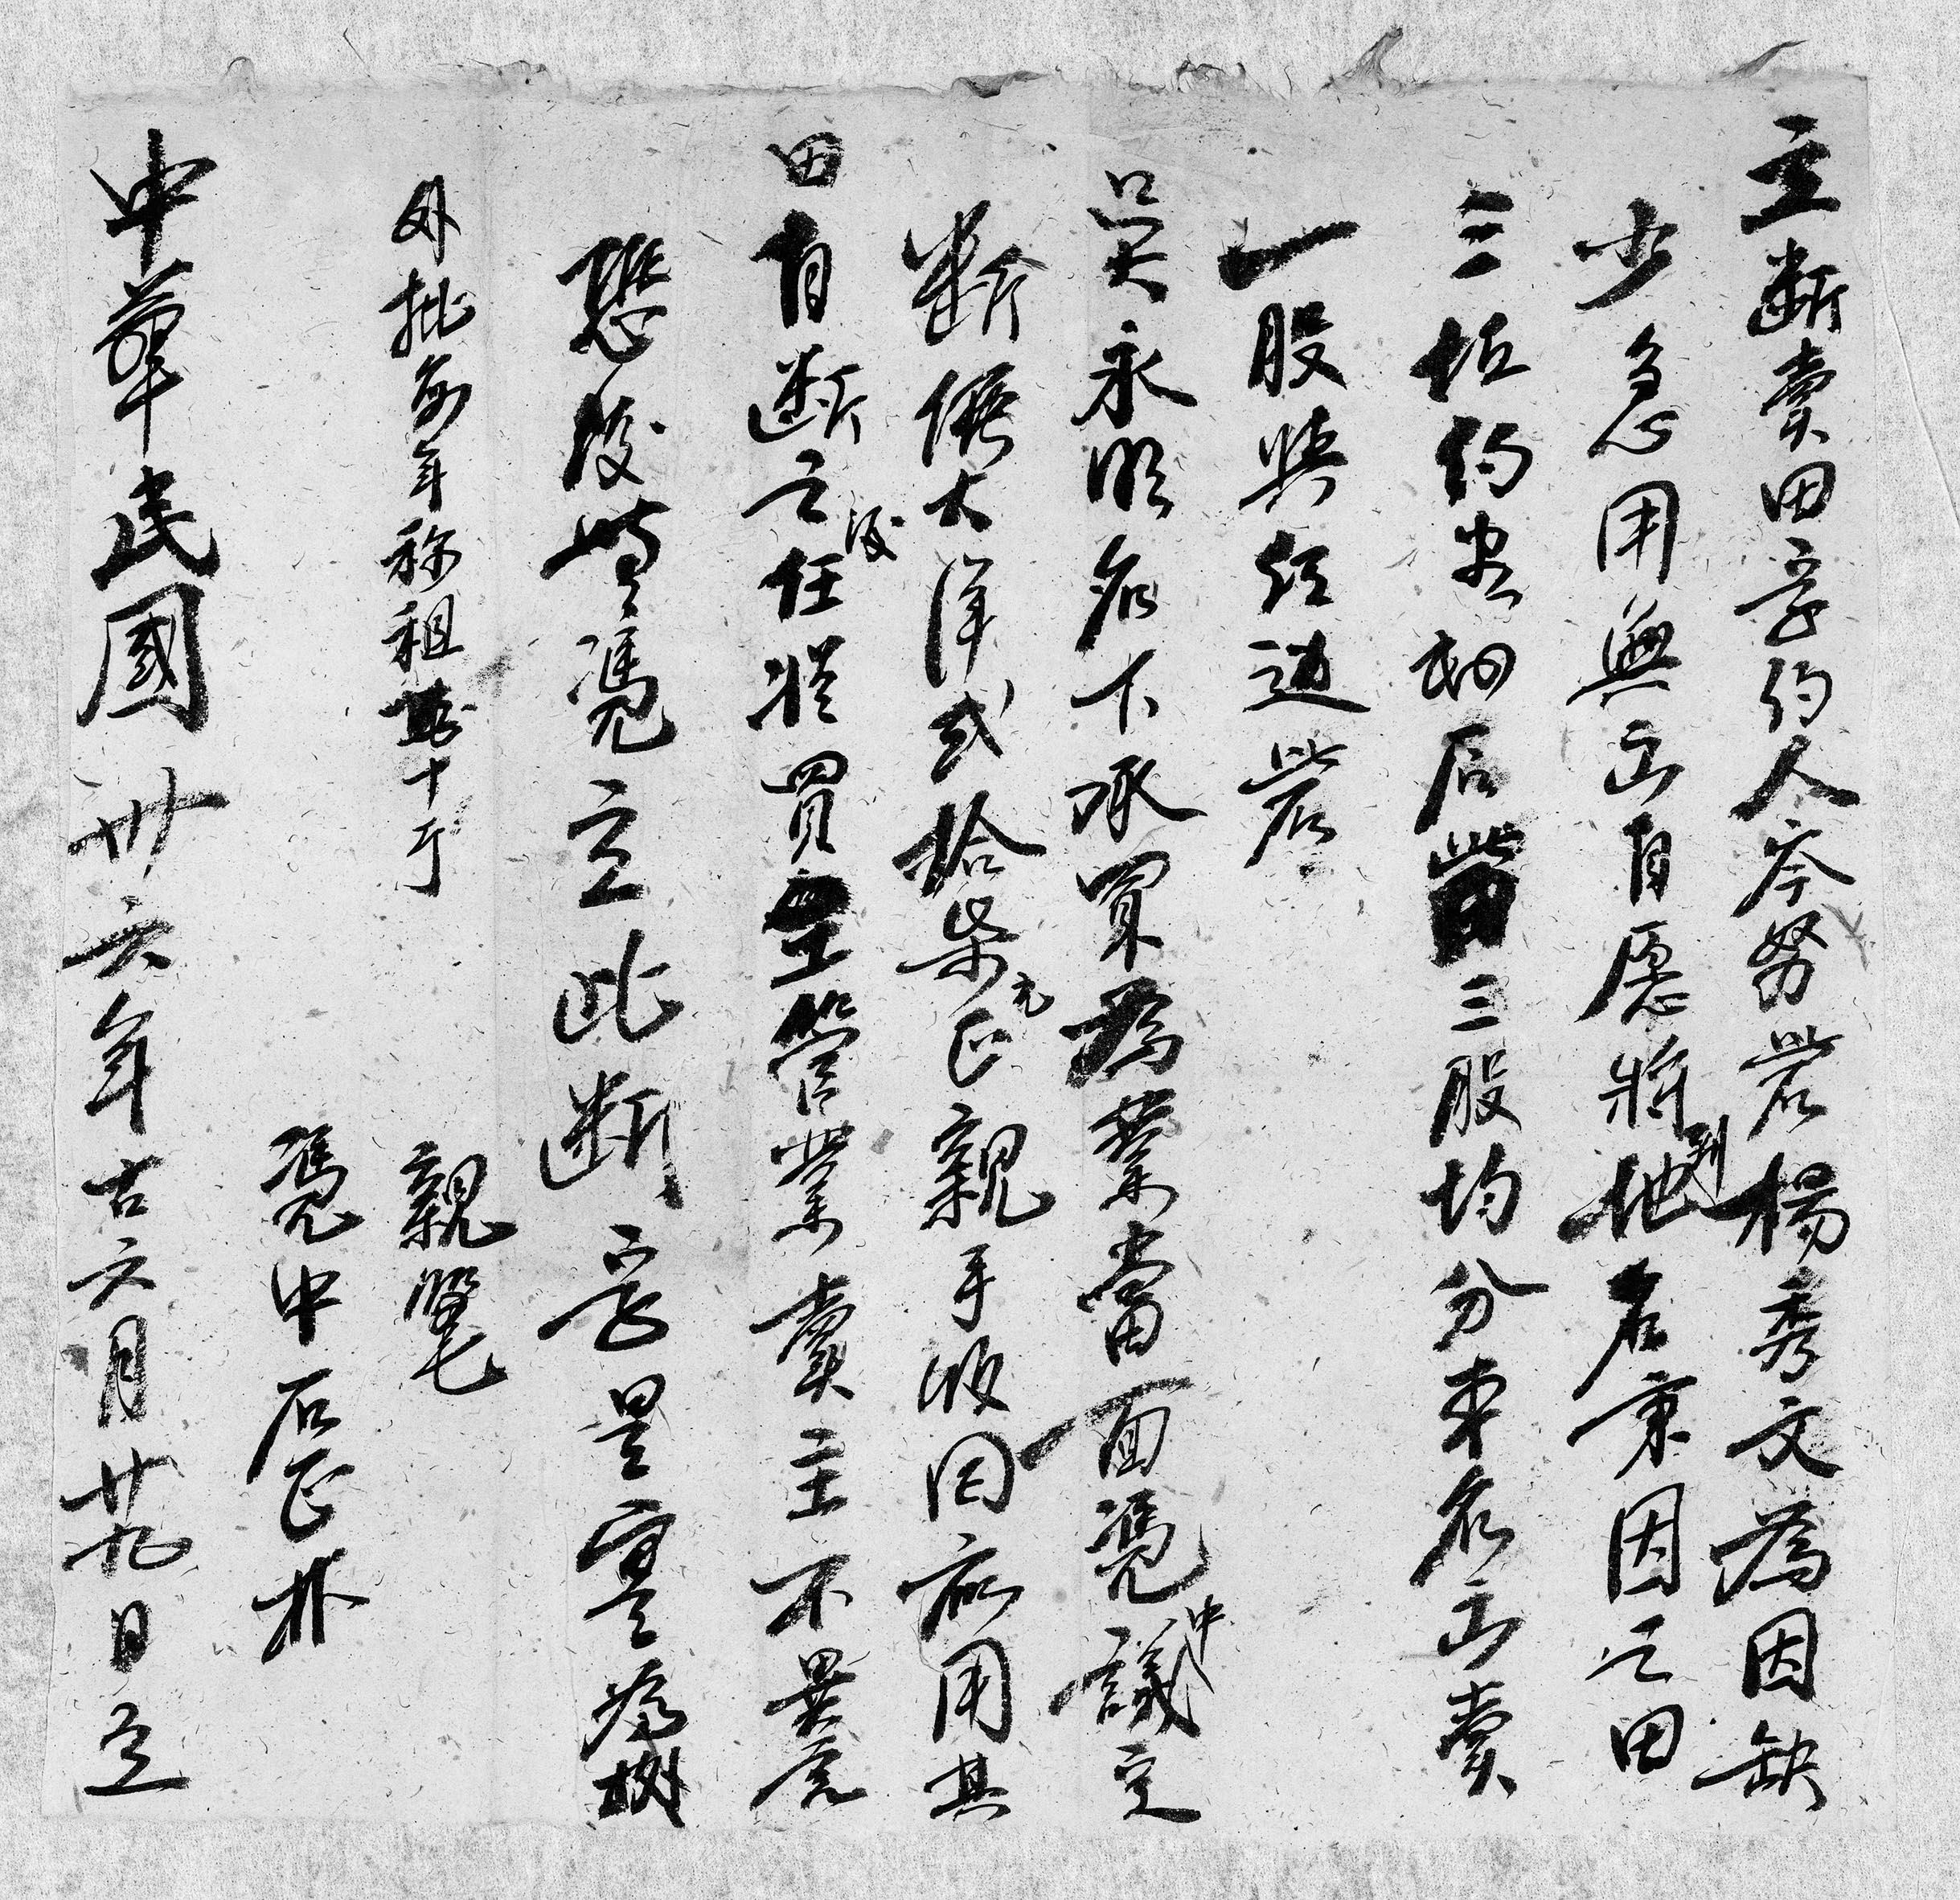 立断賣田字約人岑努岩楊秀文為因缺
少急用無出自愿將到地名東因之田
三坵約禾把后三股均分東名出賣
一股與紅边岩
吳永明名下承買為業當面憑中議定
断價大洋弍拾柒元正親手收回应用其
田自断之後任從買主管業賣主不異言
恐後無憑立此断字是實為據
外批每年称租十斤
親筆
憑中石正林
中華民國卅六年古六月廿九日立